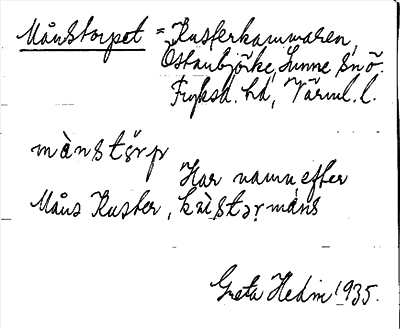 Månstorpet = Kusterkammaren,
Östanbjörke, Sunne snö.
Fryksd. hd, Värml. l.
mànstörp
Har namn efter
Måns Kuster, kùstǝrmáns
Greta Hedin 1935.